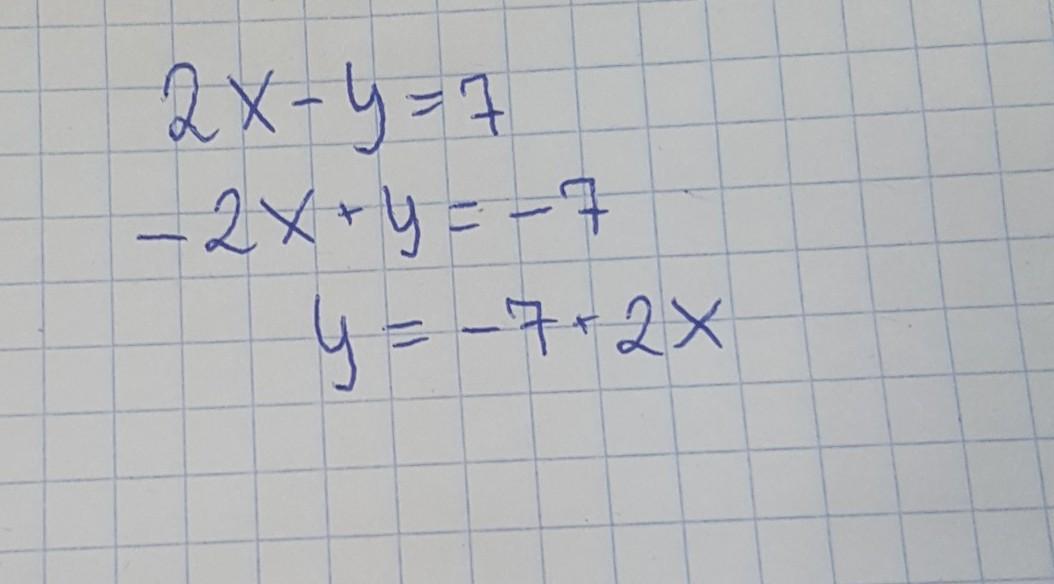 2x-y=7
-2x+y=-7
y=-7+2x